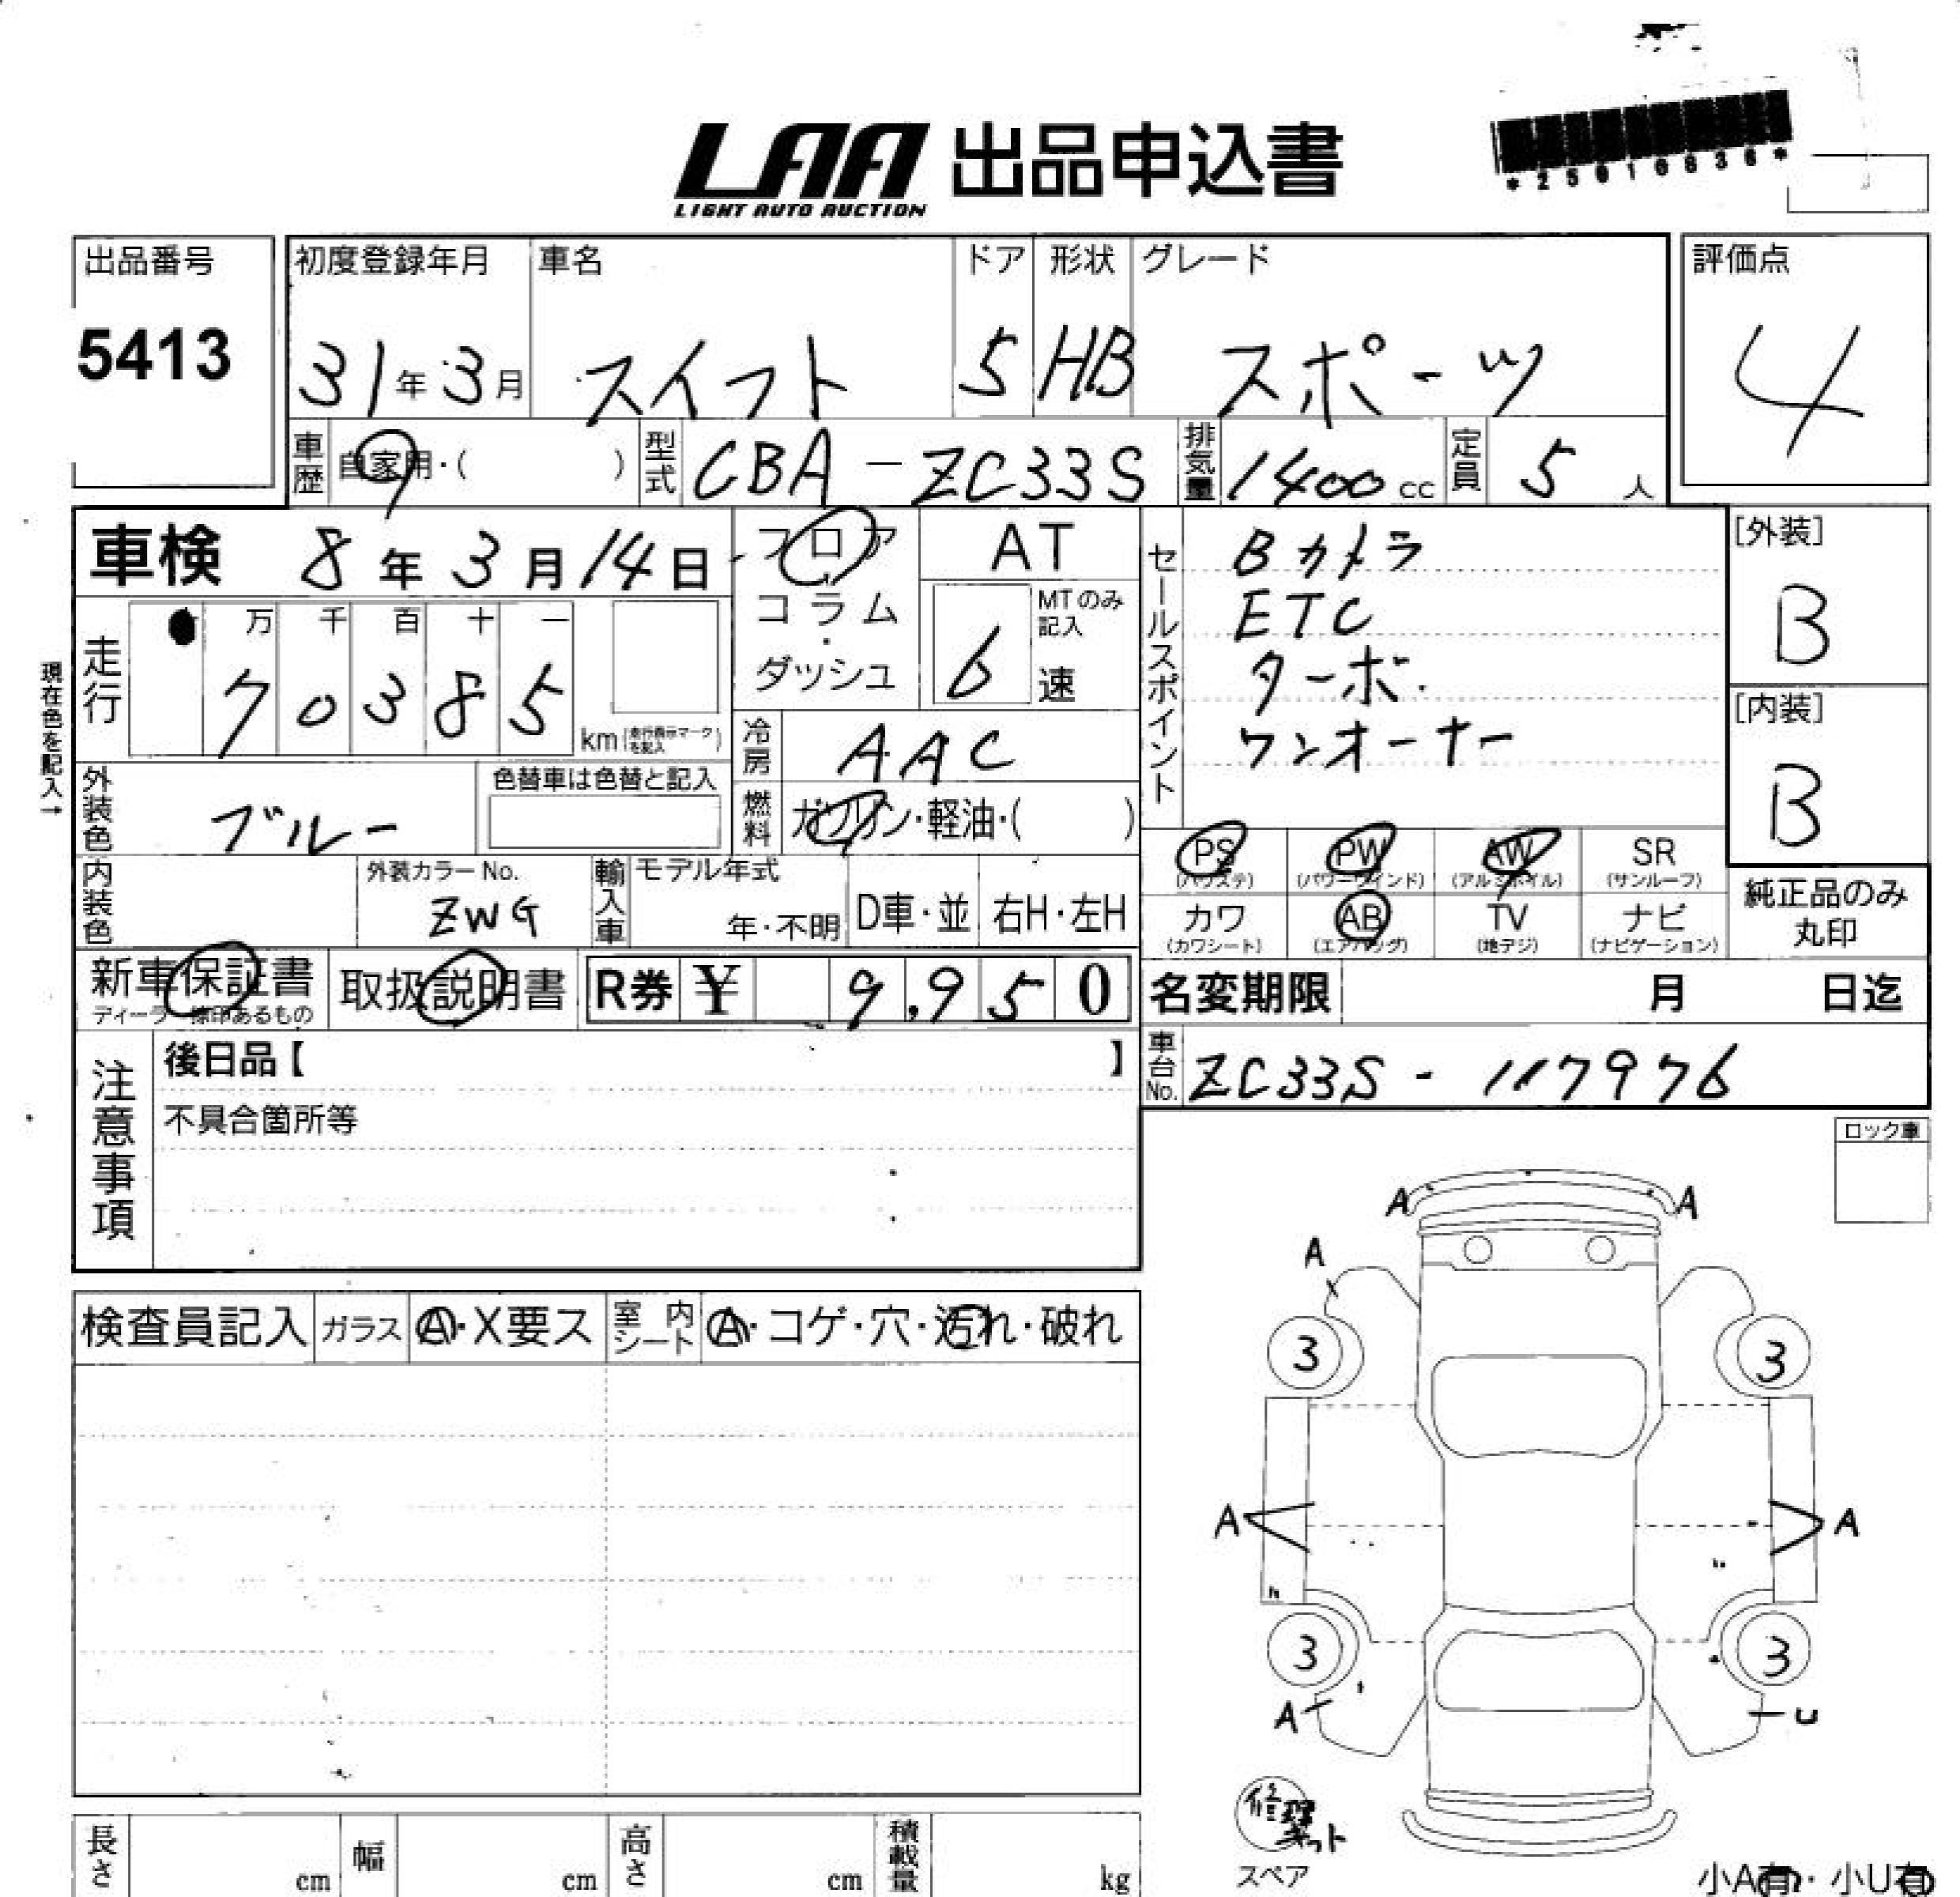 LAA 出品申込書
LIGHT AUTO AUCTION
*25010836*
出品番号
5413
初度登録年月
31年3月
車名
スイフト
ドア
5
形状
HB
グレード
スポーツ
評価点
4
車歴
自家用・( )
型式
CBA-ZC33S
排気量
1400cc
定員
5人
車検 8年3月14日
フロア
・
コラム
・
ダッシュ
AT
MTのみ記入
6速
セールスポイント
Bカメラ
ETC
ターボ
ワンオーナー
[外装]
B
[内装]
B
現在色を記入→
走行
万 千 百 十 一
7 0 3 8 5
km(走行表示マークを記入)
冷房
AAC
外装色
ブルー
色替車は色替と記入
燃料
ガソリン・軽油・( )
PS
(パワステ)
PW
(パワーウインド)
AW
(アルミホイル)
SR
(サンルーフ)
カワ
(カワシート)
AB
(エアバッグ)
TV
(地デジ)
ナビ
(ナビゲーション)
純正品のみ
丸印
内装色
外装カラーNo.
ZWG
輸入車
モデル年式
年・不明
D車・並
右H・左H
新車保証書
取扱説明書
R券 ¥ 9,950
名変期限 月 日迄
車台No.
ZC33S - 117976
注意事項
後日品【 】
不具合箇所等
ロック車
検査員記入
ガラス
A・X要ス
室内シート
A・コゲ・穴・汚れ・破れ
A A
A
3 3
A A
3 3
A U
修理
キット
スペア
小A有・小U有
長さ cm
幅 cm
高さ cm
積載量 kg